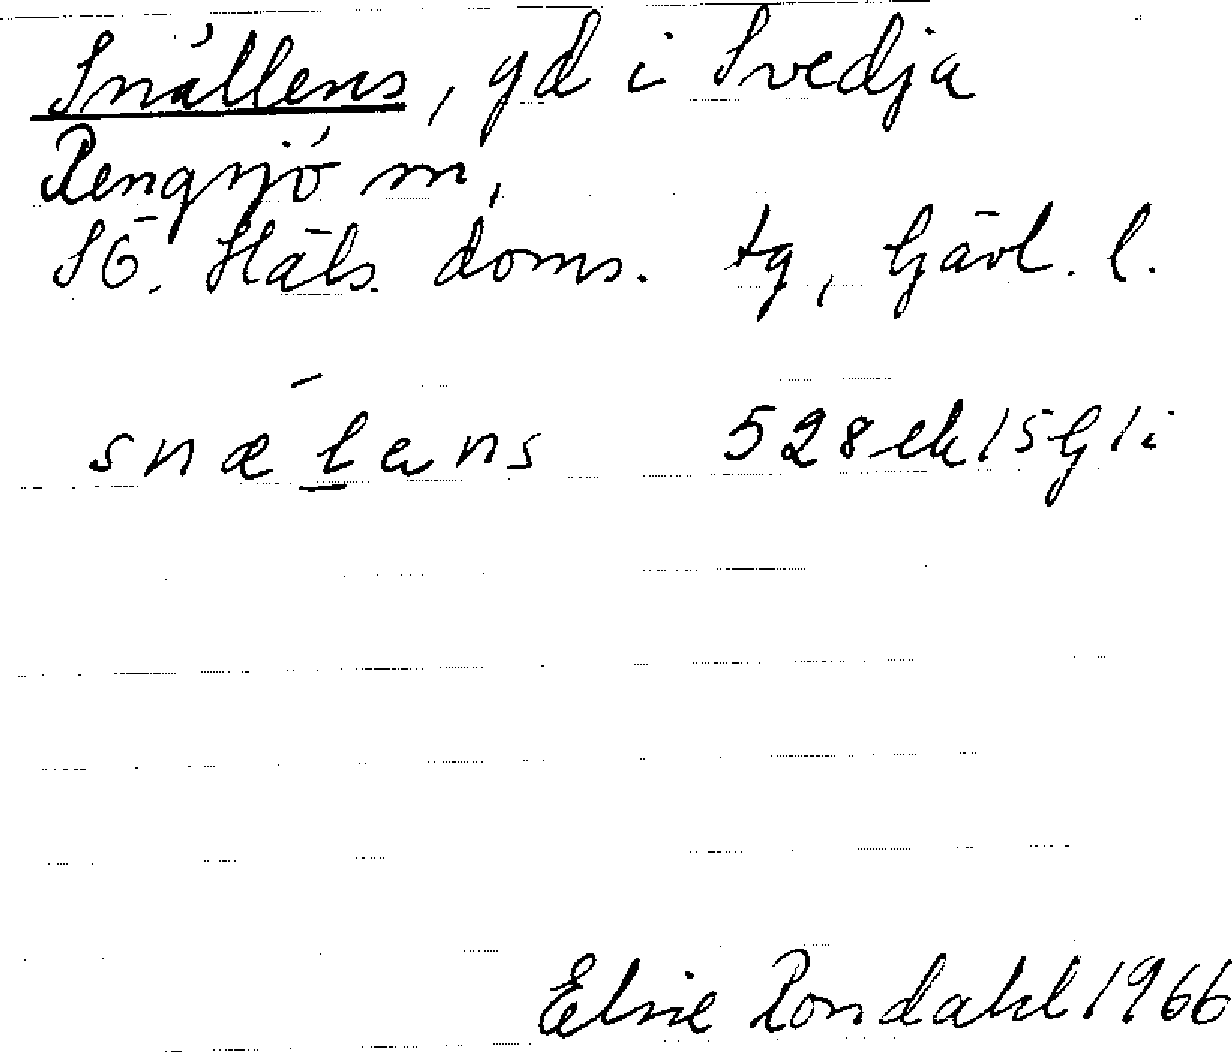 Snällens, gd i Svedja
Rengsjö sn,
Sö. Häls. doms. tg, Gävl. l.
snælens 528ek15g1i
Elsie Rondahl 1966